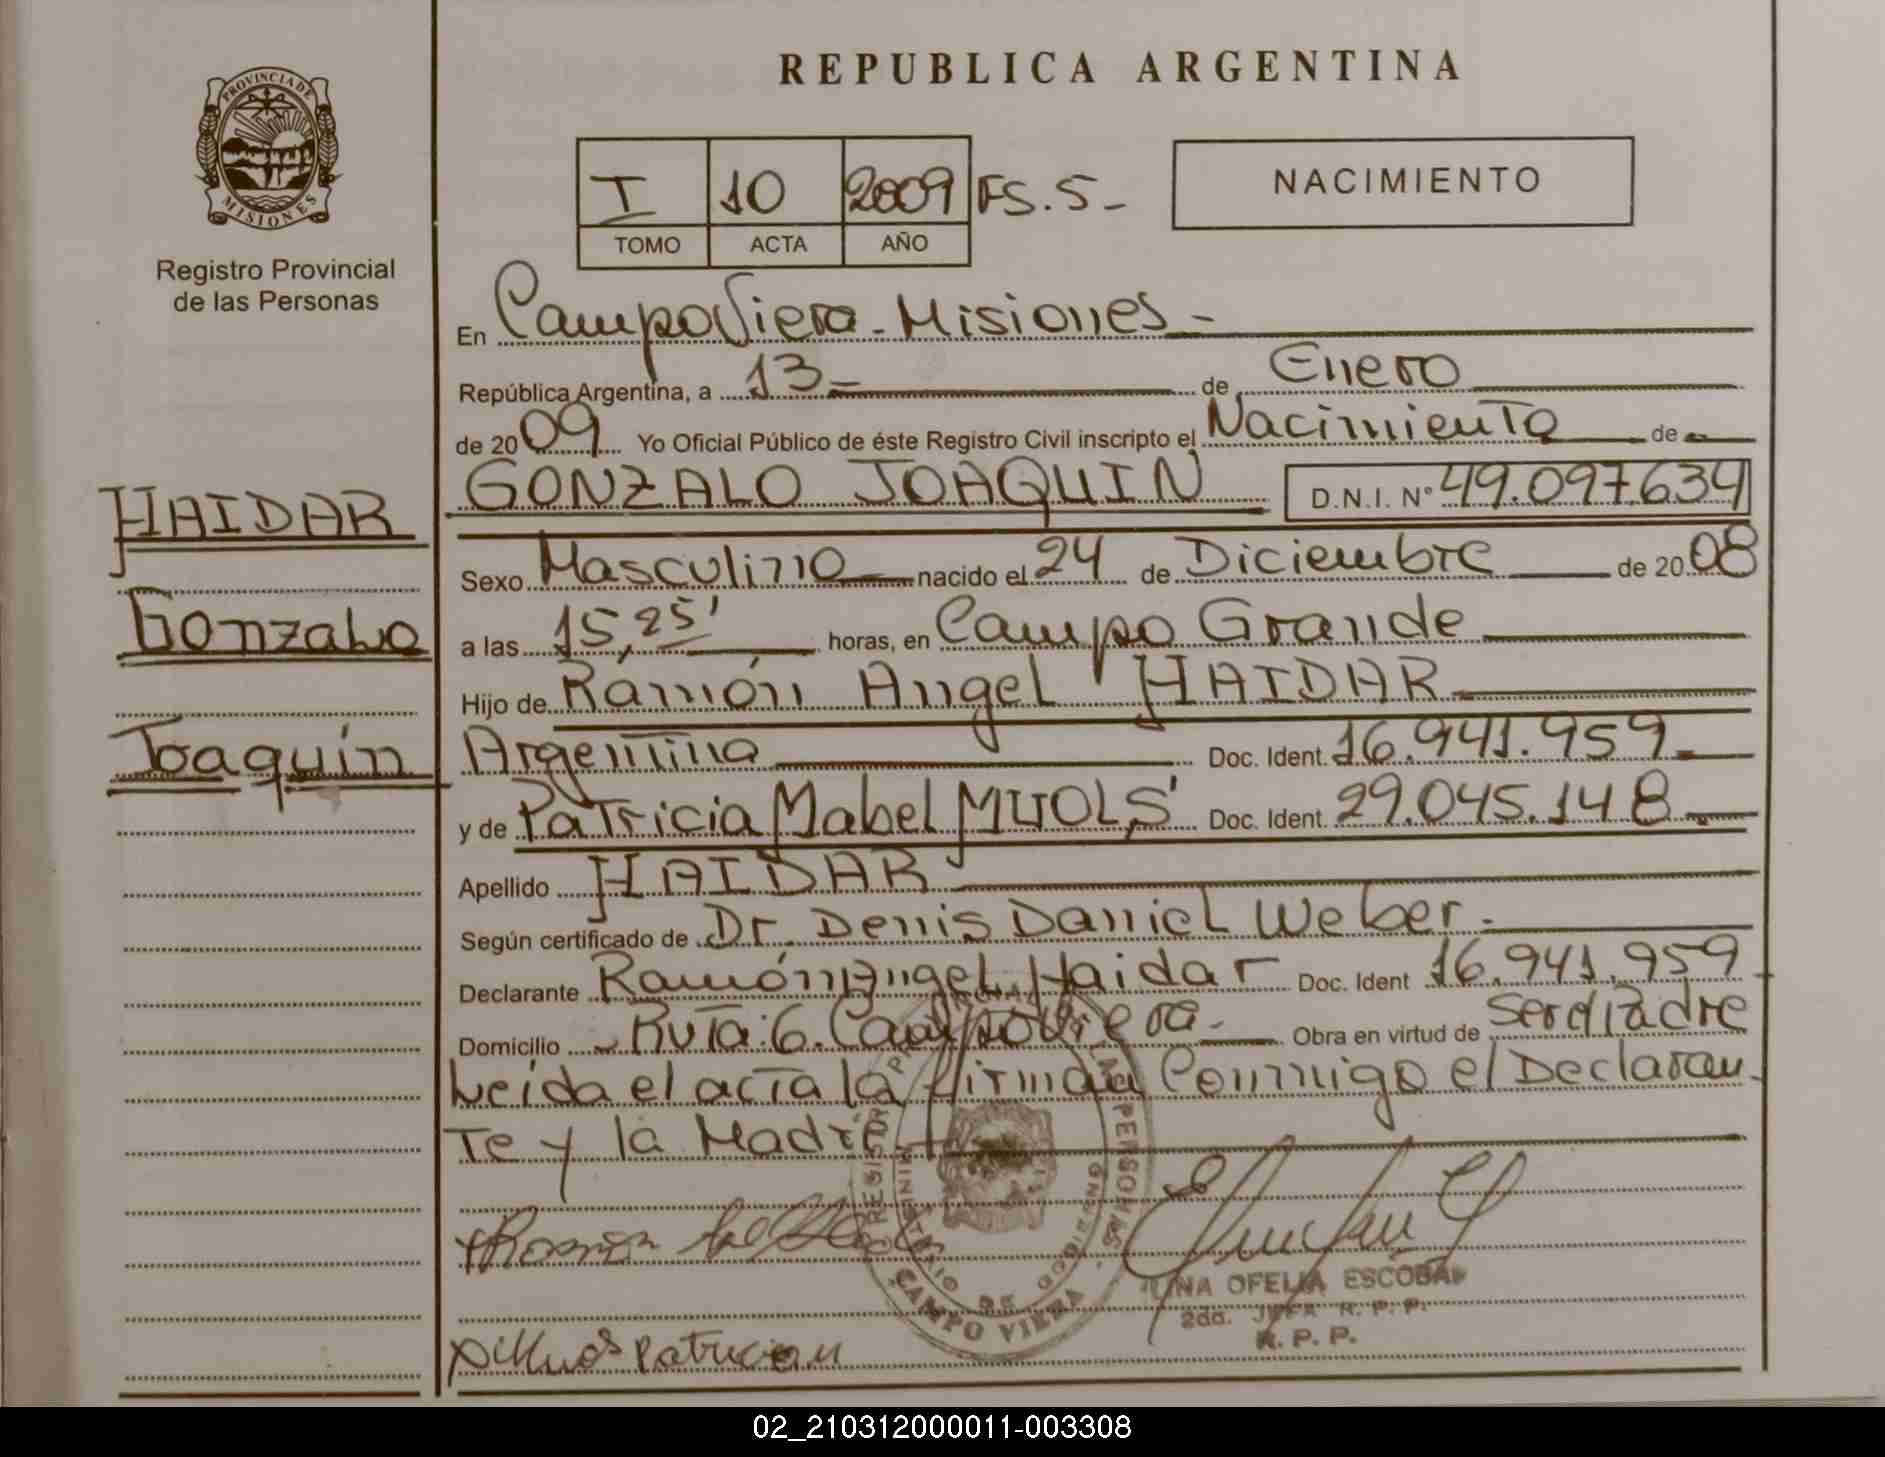 REPUBLICA ARGENTINA
PROVINCIA DE
MISIONES
Registro Provincial
de las Personas
I 10 2009 FS. 5-
TOMO ACTA AÑO
NACIMIENTO
HAIDAR
Gonzalo
Joaquín
En Campo Viera - Misiones -
República Argentina, a 13- de Enero
de 2009 Yo Oficial Público de éste Registro Civil inscripto el Nacimiento de
GONZALO JOAQUIN D.N.I. N° 49.097.634
Sexo Masculino nacido el 24 de Diciembre de 2008
a las 15,25' horas, en Campo Grande
Hijo de Ramón Angel HAIDAR
Argentina Doc. Ident. 16.941.959-
y de Patricia Mabel Doc. Ident. 29.045.148
Apellido HAIDAR
Según certificado de Dr. Denis Daniel Weber.
Declarante Ramón Angel Haidar Doc. Ident 16.941.959
Domicilio Ruta: 6. Campo Viera- Obra en virtud de ser el Padre
Leída el acta la firman Conmigo el Declaran
te y la Madre
CAMPO VIERA
OFELIA ESCOBAR
2da. JEFA R. P. P.
R. P. P.
02_210312000011-003308